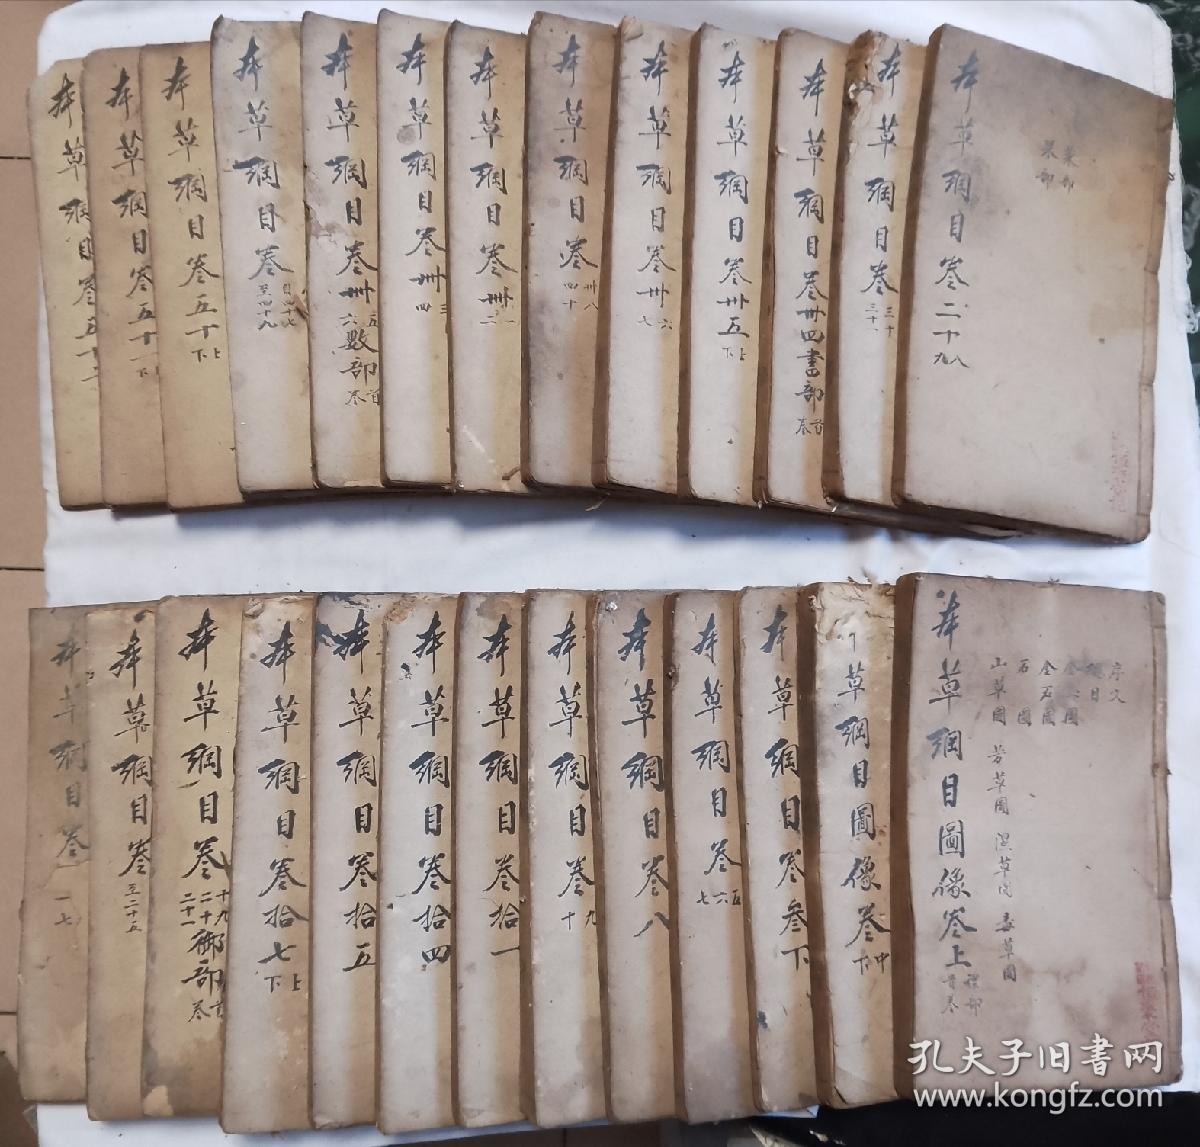 本草綱目卷二十八九
菜部
果部
本草綱目卷三十三十一
本草綱目卷卅四書部首卷
本草綱目卷卅五上下
本草綱目卷卅六七
本草綱目卷卅八四十
本草綱目卷卅一二
本草綱目卷卅三四
本草綱目卷卅五六數部首卷
本草綱目卷自四十七至四十九
本草綱目卷五十上下
本草綱目卷五十一上下
本草綱目卷五十二
本草綱目圖像卷上禮部首卷
序文
總目
金玉圖
石圖
山草圖 芳草圖 濕草圖 毒草圖
草綱目圖像卷中下
本草綱目卷叁下
本草綱目卷五六七
本草綱目卷八
本草綱目卷九十
本草綱目卷拾一
本草綱目卷拾四
本草綱目卷拾五
本草綱目卷拾七上下
本草綱目卷十九二十二十一御部首卷
本草綱目卷至二十五
本草綱目卷一七
孔夫子旧书网
www.kongfz.com